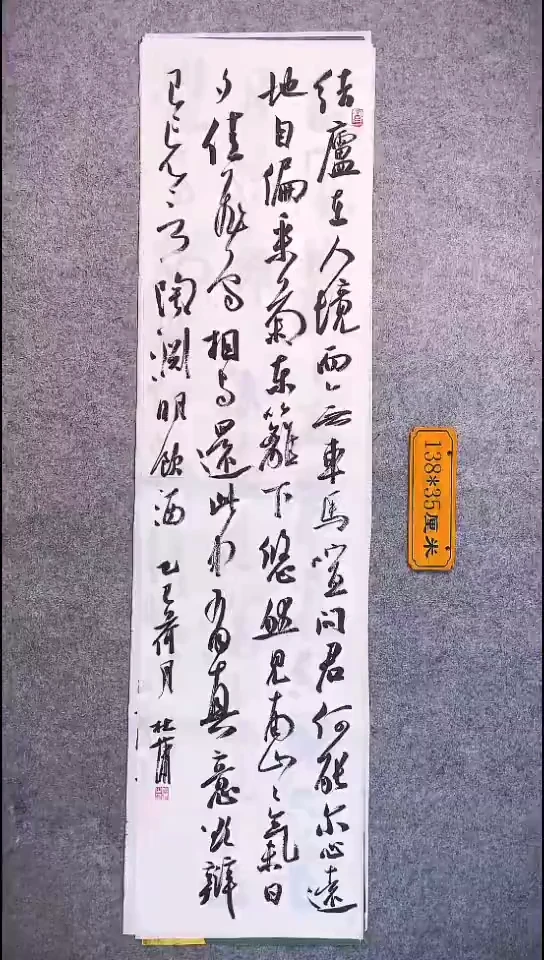 结廬在人境而無車馬喧问君何能尔心遠
地自偏采菊东籬下悠然见南山山氣日
夕佳飛鸟相与還此中有真意欲辯
已忘言陶渊明飲酒 乙巳荷月 杜
138*35厘米